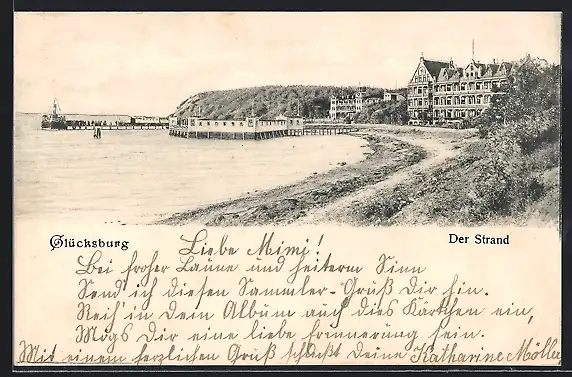 Glücksburg
Der Strand
Liebe Mimi!
Bei froher Laune und heiterm Sinn
Send' ich diesen Sammler-Gruß Dir hin.
Reih' in Dein Album auch dies Kärtchen ein,
Mögs Dir eine liebe Erinnerung sein.
Mit einem herzlichen Gruß schließt Deine Katharine Möller